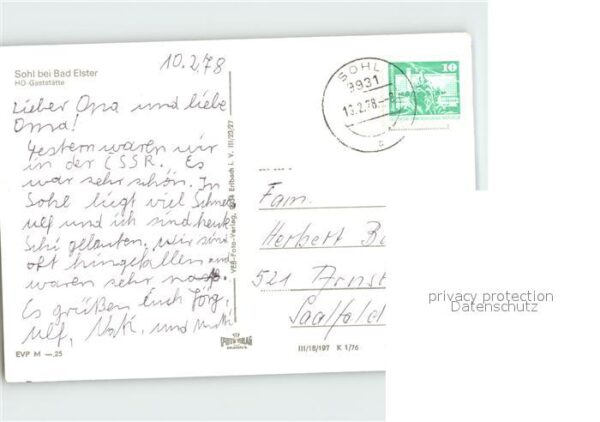 Sohl bei Bad Elster
HO Gaststätte
10.2.78
Lieber Opa und liebe
Oma!
Gestern waren wir
in der ČSSR. Es
war sehr schön. In
Sohl liegt viel Schnee
Ulf und ich sind heute
Schi gelaufen. Wir sind
oft hingefallen und
waren sehr naß.
Es grüßen Euch Jörg,
Ulf, und
EVP M —,25
VEB-Foto-Verlag, Erlbach i. V. III/23/27
III/18/197 K 1/76
SOHL
9931
13.2.78
a
10
Fam.
Herbert
521 Arnst
Saalfeld
privacy protection
Datenschutz